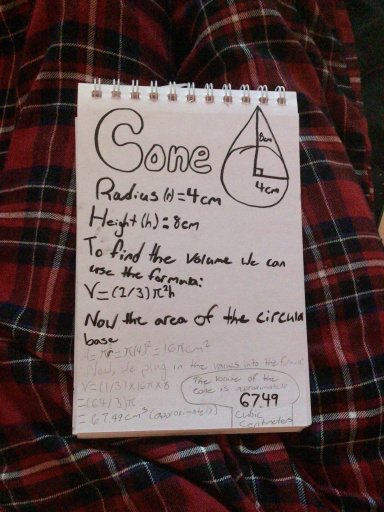 Cone
8cm
4cm
Radius (r) = 4cm
Height (h) = 8cm
To find the volume we can
use the formula:
V = (1/3) π²h
Now the area of the circula
base
= πr² = π(4)² = 16π cm²
Now, we plug in the values into the
V = (1/3) × 16π × 8
= (64/3)π
= 67.49 cm³ (approximately)
The volume of the
cone is approximately
67.49
Cubic
Centimeters